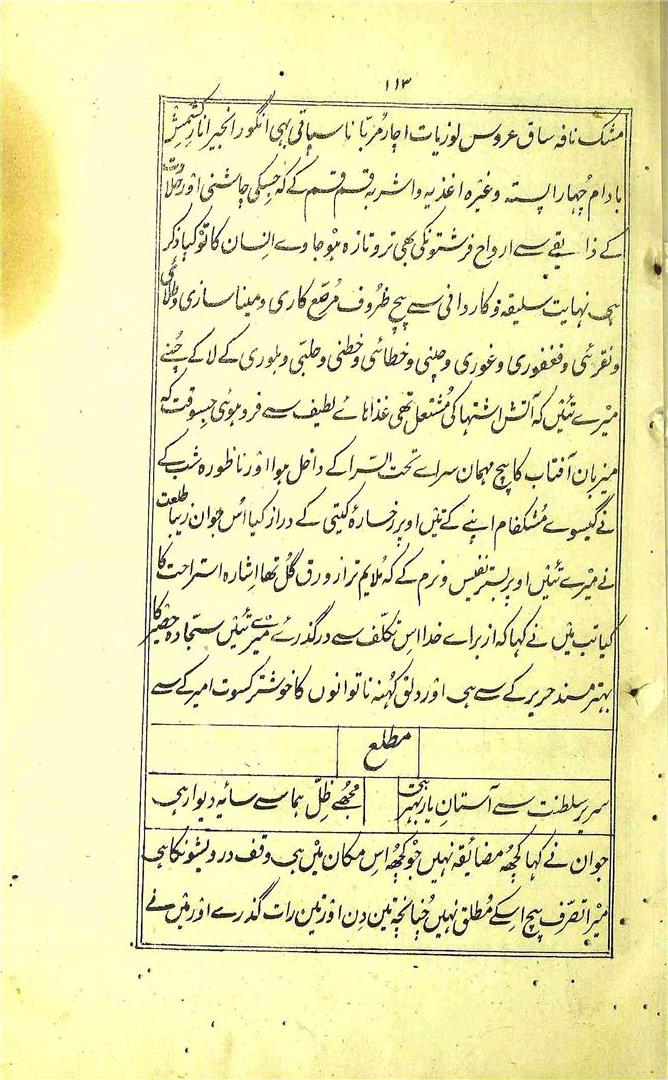 ۱۱۳
مشک نافہ ساق عروس لوزیات اچار مُربّا ناسپاتی بہی انگور انجیر انار کشمش
بادام چُہارا پستہ وغیرہ اغذیہ و اشربہ قسم قسم کے کہ جسکی چاشنی اور حلاوت
کے ذایقے سے ارواح فرشتونکی بھی تروتازہ ہوجاوے اِنسان کا تو کیا ذکر
ہی نہایت سلیقہ و کاردانی سے بیچ ظروف مُرصّع کاری و میناسازی و طلائی
و نقرئی و فغفوری و غوری و چینی و خطائی و خطنی و حلبی و بلوری کے لاکے چُنے
میرے تئیں کہ آتش اشتہا کی مُشتعل تھی غذاہاے لطیف سے فرو ہوئی جسوقت کہ
میزبان آفتاب کا بیچ مہمان سراے تحت السّرا کے داخل ہوا اور ناظورہ شب کے
نے گیسوے مُشکفام اپنے کے تئیں اوپر رخسارۂ گیتی کے دراز کیا اُس جوان زیبا طلعت
نے میرے تئیں اوپر بستر نفیس و نرم کے کہ مُلایم تر از ورق گُل تھا اِشارہ استراحت کا
کیا تب میں نے کہا کہ از براے خدا اس تکلّف سے درگذرے میرے تئیں سجّادہ حصیر کا
بہتر مسند حریر کے سے ہی اور دلق کُہنہ ناتوانوں کا خوشتر کسوت امیر کے سے
مطلع
سریر سلطنت سے آستانِ یار بہتر ہی مجھے ظلّ ہما سے سایہ دیوار ہی
جوان نے کہا کچھ مضائقہ نہیں جو کچھ اس مکان میں ہی وقف درویشونکا ہی
میرا تصرّف بیچ اسکے مُطلق نہیں چُنانچہ تین دن اور تین رات گذرے اور میں نے